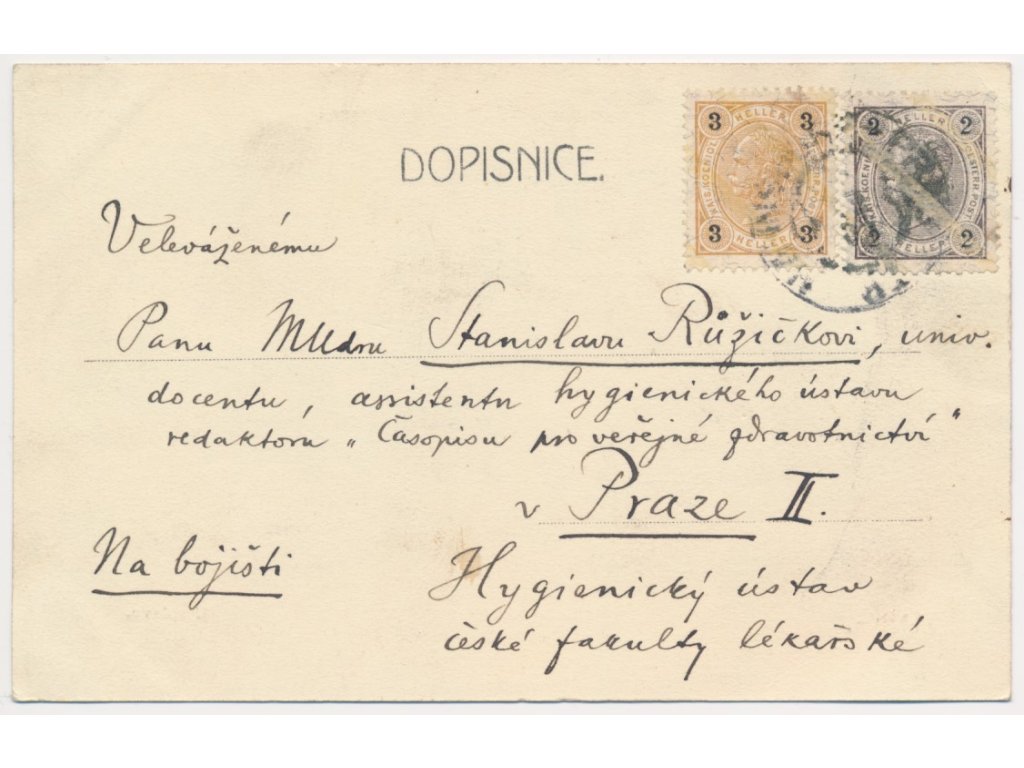 DOPISNICE.
3 HELLER 3
KAIS. KOENIGL. OESTERR. POST
3 HELLER 3
2 HELLER 2
KAIS. KOENIGL. OESTERR. POST
2 HELLER 2
Velevāženému
Panu MUdru Stanislavu Růžičkovi, univ.
docentu, assistentu hygienického ústavu
redaktoru „Časopisu pro veřejné zdravotnictví"
v Praze II.
Na bojišti
Hygienický ústav
české fakulty lékařské